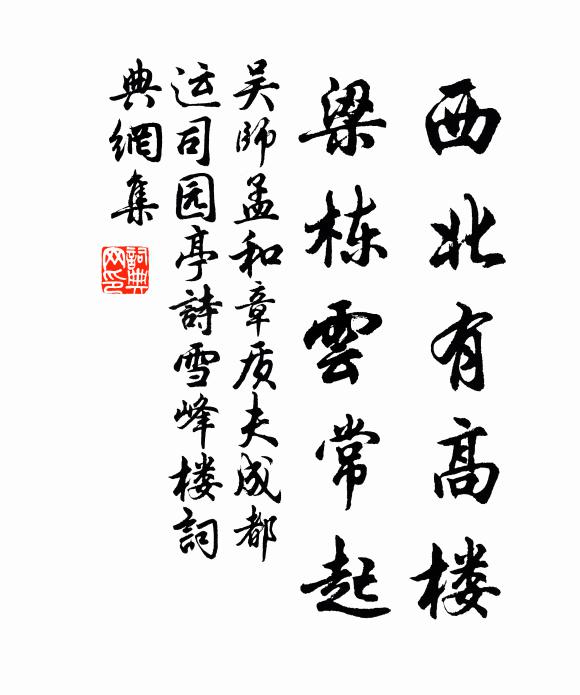 西北有高楼
梁栋雲常起
吴師孟和章质夫成都
运司园亭詩雪峰楼詞
典網集
詞典
网印